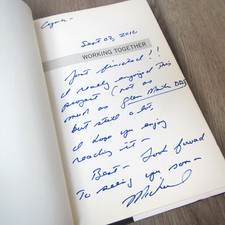 Sept 03, 2012
WORKING TOGETHER
Just finished!!
I really enjoyed this
project (not as
much as Glen
but still a lot.
I hope you enjoy
reading it-
Best- Look forward
To seeing you soon-
Michael